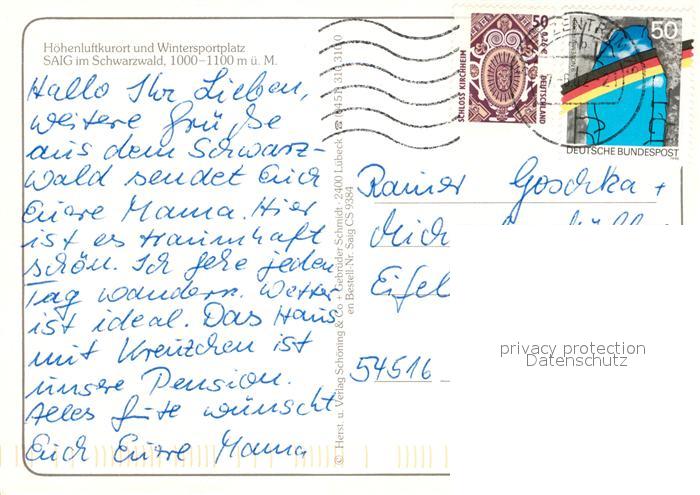 Höhenluftkurort und Wintersportplatz
SAIG im Schwarzwald, 1000–1100 m ü. M.
Hallo Ihr Lieben,
weitere Grüße
aus dem Schwarz-
wald sendet Euch
Eure Mama. Hier
ist es traumhaft
schön. Ich gehe jeden
Tag wandern. Wetter
ist ideal. Das Haus
mit Kreuzchen ist
unsere Pension.
Alles Gute wünscht
Euch Eure Mama
© Herst. u. Verlag Schöning & Co + Gebrüder Schmidt · 2400 Lübeck
en Bestell-Nr. Saig CS 9384
50
SCHLOSS KIRCHHEIM
DEUTSCHLAND
50
DEUTSCHE BUNDESPOST
Rainer Goschka +
Mich
Eifel
54516
privacy protection
Datenschutz